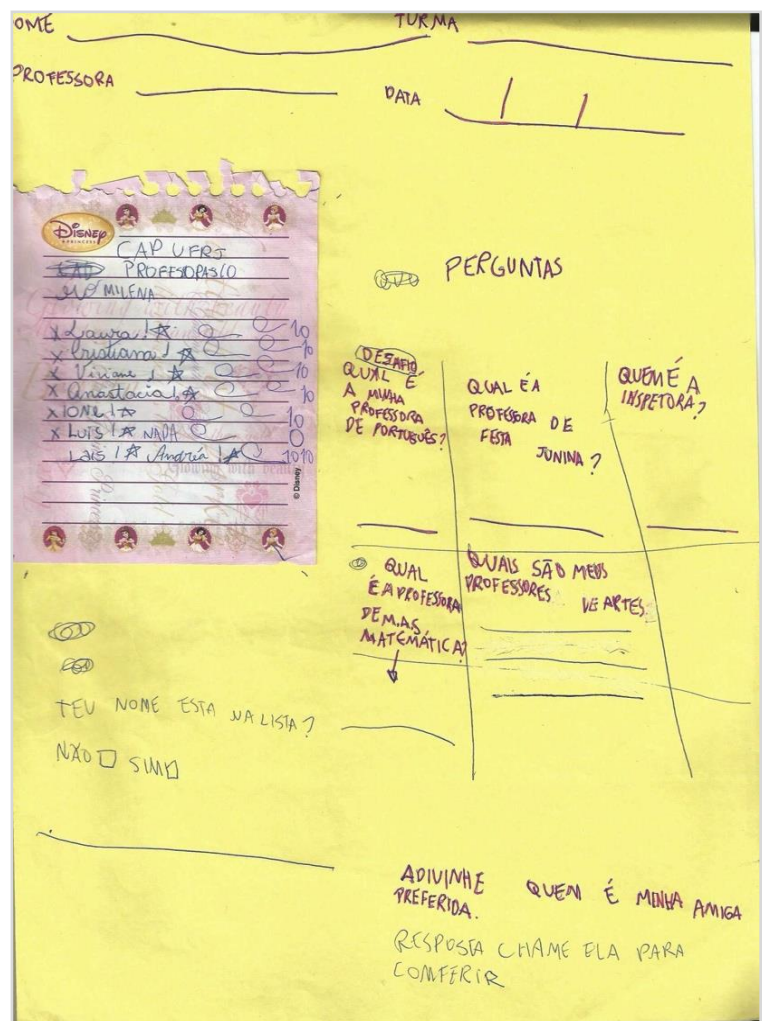 OME TURMA
PROFESSORA DATA
DISNEY
PRINCESS
CAP UFRJ
MILENA
X Laura! 10
X Cristiana! 10
X Viviane! 10
X Anastacia! 10
X IONE! 10
X LUIS! NADA 0
LAIS! Andréa! 10 10
© Disney
PERGUNTAS
DESAFIO
QUAL É
A MINHA
PROFESSORA
DE PORTUGUÊS?
QUAL É A
PROFESSORA DE
FESTA
JUNINA?
QUEM É A
INSPETORA?
QUAL
É A PROFESSORA
DE MAS
MATEMÁTICA?
QUAIS SÃO MEUS
PROFESSORES DE ARTES
TEU NOME ESTA NA LISTA?
NÃO SIM
ADIVINHE QUEM É MINHA AMIGA
PREFERIDA.
RESPOSTA CHAME ELA PARA
COMFERIR